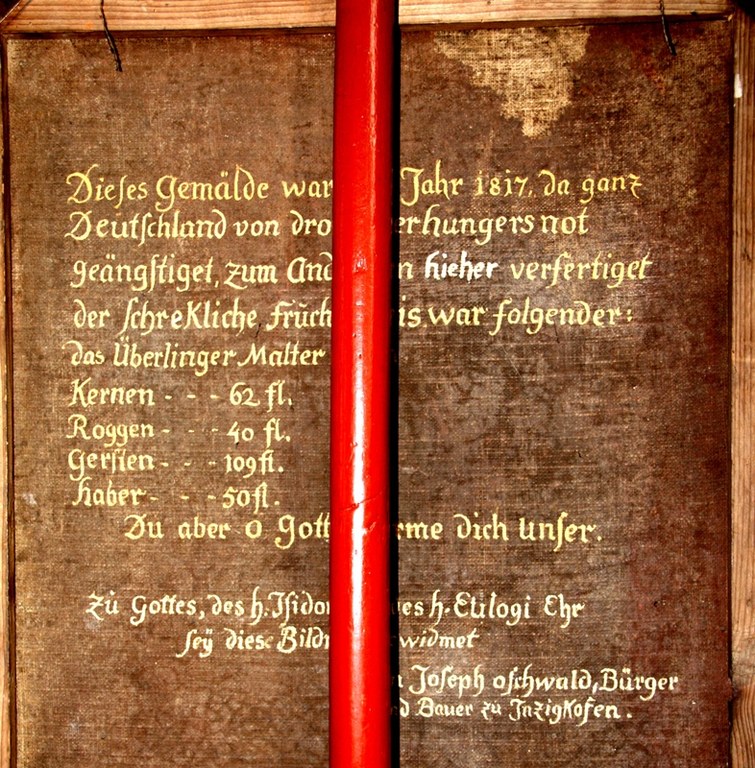 Dieses Gemälde war Jahr 1817, da ganz
Deutschland von dro erhungersnot
geängstiget, zum And n hieher verfertiget
der schrekliche Früch is war folgender:
das Überlinger Malter
Kernen - - - 62 fl.
Roggen - - - 40 fl.
Gersten - - - 109 fl.
haber - - - 50 fl.
Du aber O Gott rme dich Unser.
Zu Gottes, des h. Isidor es h. Eulogi Ehr
sey diese Bildn widmet
n Joseph oschwald, Bürger
d Bauer zu Inzigkofen.